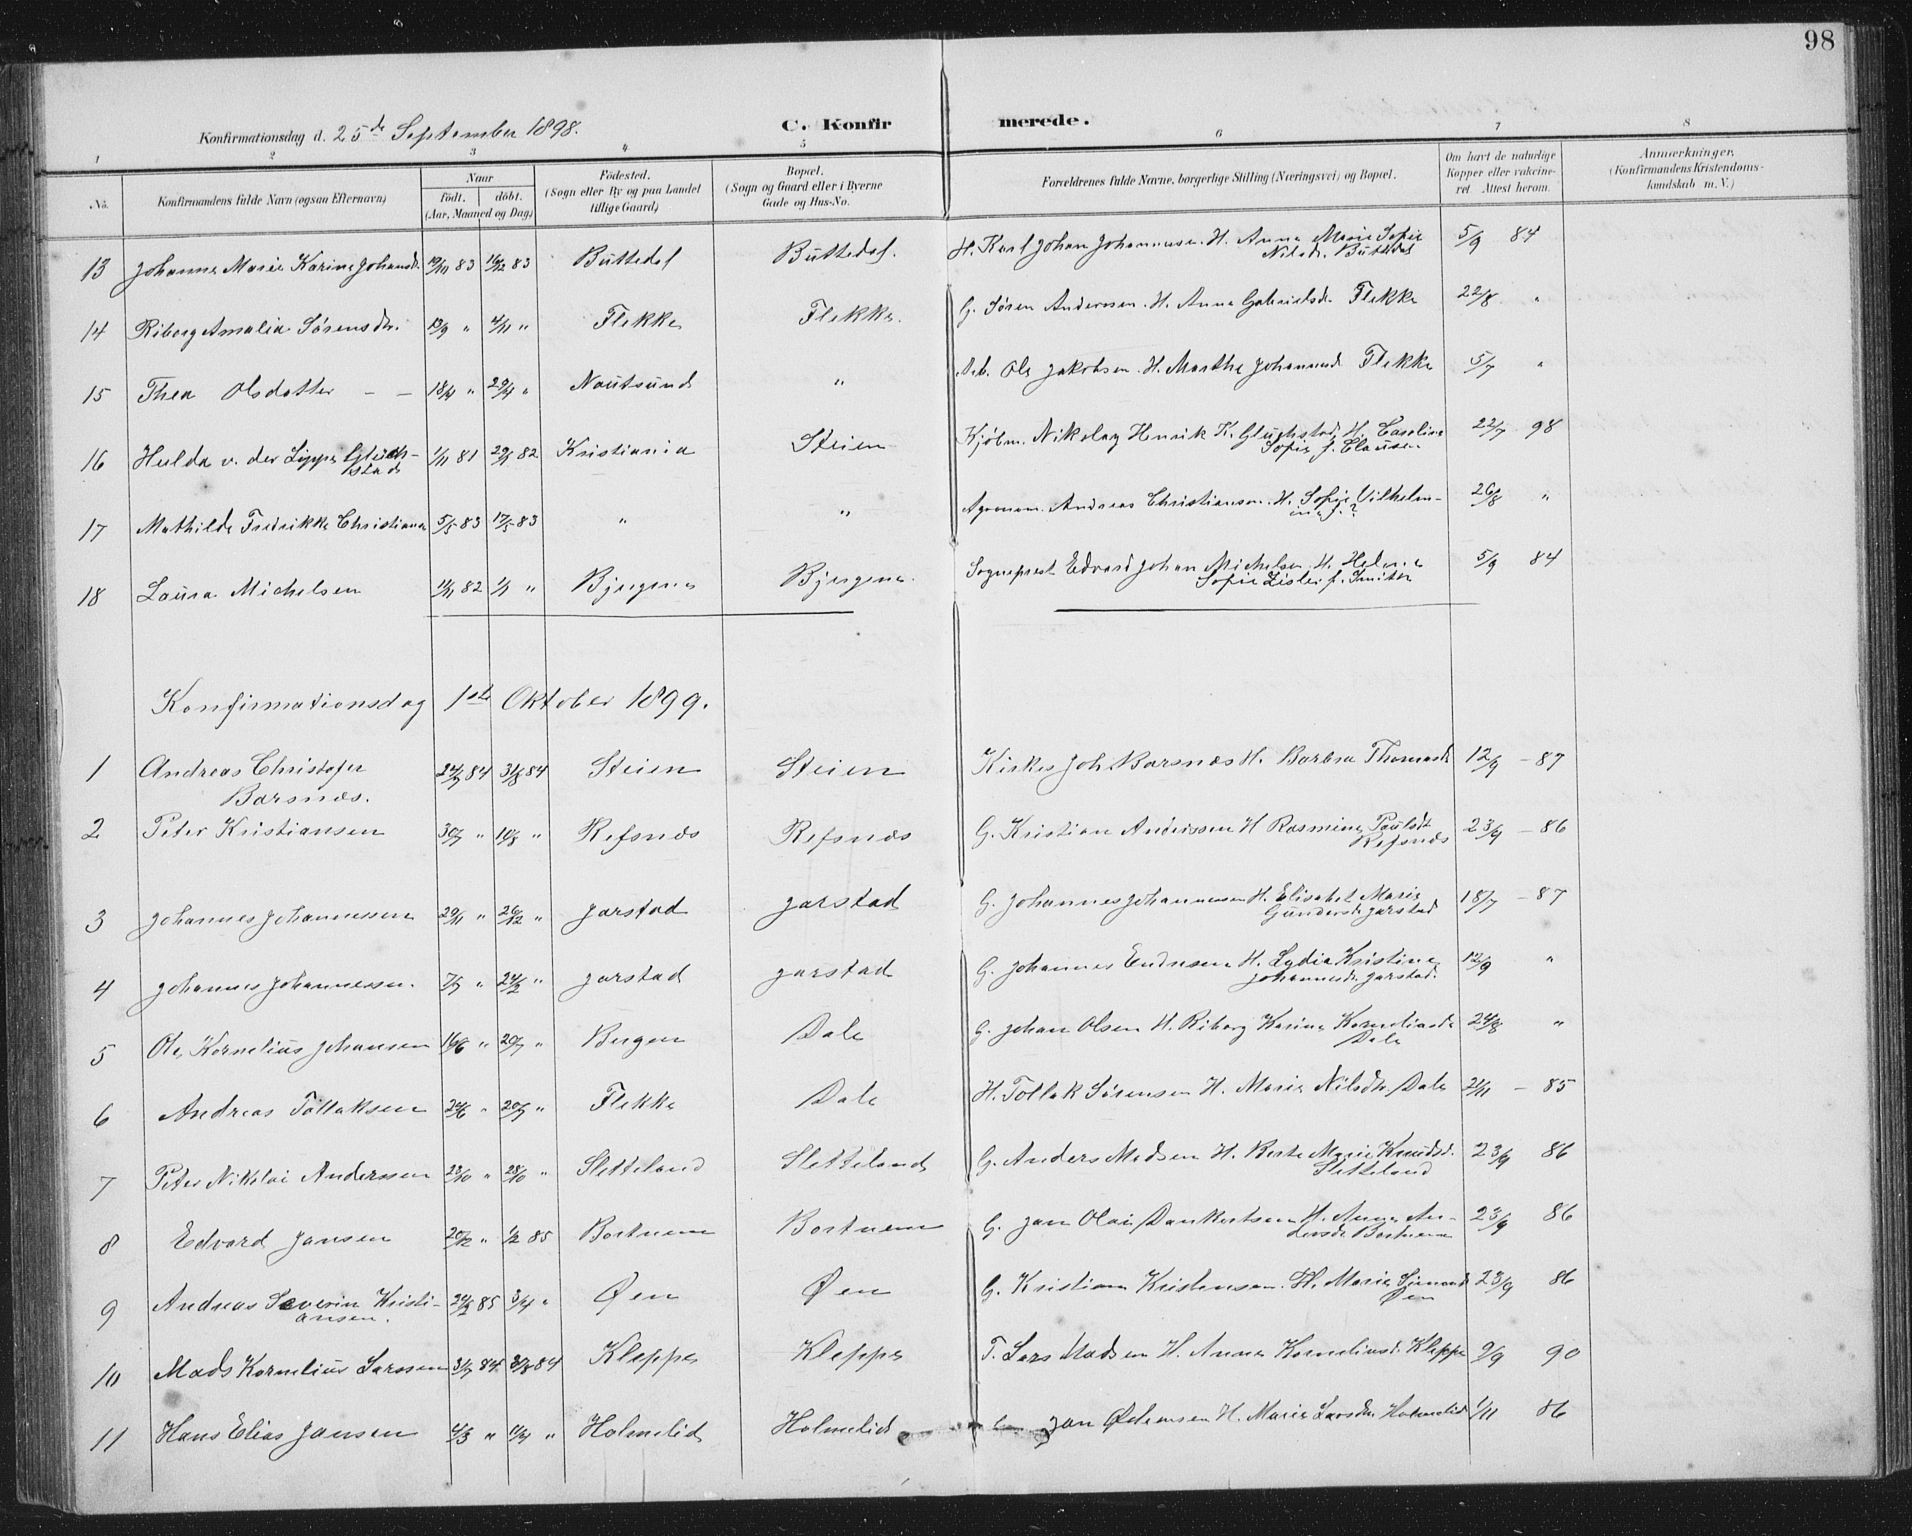 98
Konfirmationsdag d. 25de September 1898.
C. Konfirmerede.
1 2 3 4 5 6 7 8
No.
Konfirmandens fulde Navn (ogsaa Efternavn)
Naar
födt. döbt.
(Aar, Maaned og Dag)
Födested.
(Sogn eller By og paa Landet
tillige Gaard)
Bopæl.
(Sogn og Gaard eller i Byerne
Gade og Hus-No.
Forældrenes fulde Navne, borgerlige Stilling (Næringsvei) og Bopæl.
Om havt de naturlige
Kopper eller vakcine-
ret. Attest herom.
Anmærkninger.
(Konfirmandens Kristendoms-
kundskab m. V.)
13 Johanne Marie Karine Johansd. 19/11 83 16/12 83 Buttedal Buttedal. H. Karl Johan Johannesen. H. Anna Marie Sofie 5/9 84
Nilsd. Buttedal
14 Riborg Amalia Sørensdr. 13/9 " 4/11 " Flekke Flekke. G. Søren Anderssen. H. Anna Gabrielsdr. Flekke 22/8 "
15 Thea Olsdatter – – 18/4 " 29/4 " Nautsund " Arb. Ole Jakobsen. H. Marthe Johannesd. Flekke 5/7 "
16 Hulda v. der Lippe Gluck- 1/11 81 29/1 82 Kristiania Steien Kjøbm. Nikolay Henrik K. Gluckstad, H. Caroline 22/7 98
stad Sofie f. Clausen
17 Mathilde Fredrikke Christianse 5/5 83 17/5 83 " " Agronom. Andreas Christiansen. H. Sofie Vilhelm- 26/8 "
ine f. ?
18 Laura Michelsen 11/11 82 1/1 " Bjergene Bjergene. Sogneprest Edvard Johan Michelsen. H. Helene 5/9 84
Sofie Lislei f. Smith
Konfirmationsdag 1ste Oktober 1899.
1 Andreas Christofer 24/7 84 31/8 84 Steien Steien Kirkes. Joh. Barsnæs H. Barbra Thomasd. 12/9 – 87
Barsnæs.
2 Peter Kristiansen 30/7 " 10/8 " Refsnæs Refsnæs G. Kristian Anderssen H Rasmine Paulsd. 23/9 – 86
Refsnæs
3 Johannes Johannessen 29/11 " 26/12 " Jarstad Jarstad G. Johannes Johannessen H. Elisabet Marie 18/7 – 87
Gundersd. Jarstad
4 Johannes Johannessen. 7/7 " 24/2 " Jarstad Jarstad G. Johannes Endresen H. Lydia Kristine 12/9 "
Johannesd. Jarstad.
5 Ole Kornelius Johansen 16/6 " 20/7 " Bergen Dale G. Johan Olsen H. Riborg Karine Korneliusd. 24/8 "
Dale
6 Andreas Tollaksen 24/6 " 20/7 " Flekke Dale H. Tollak Sørensen H. Marie Nilsdr. Dale 21/11 – 85
7 Peter Nikolai Anderssen 23/10 " 28/10 " Sletteland Sletteland G. Anders Madsen H. Berte Marie Knudsd. 23/9 86
Sletteland
8 Edvard Jansen 20/12 " 1/2 85 Bortnem Bortnem G. Jan Olai Dankertsen H. Anna An- 23/9 86
dersd. Bortnem
9 Andreas Severin Kristi- 24/2 85 3/4 " Øen Øen G. Kristian Kristensen. H. Marie Simonsd. 23/9 86
ansen. Øen
10 Mads Kornelius Larssen 31/7 84 31/8 84 Kleppe Kleppe F. Lars Madsen H. Anna Korneliusd. Kleppe 9/9 90
11 Hans Elias Jansen 4/3 " 11/4 " Holmelid Holmelid Jan H. Marie Larsdr. Holmelid 1/11 86